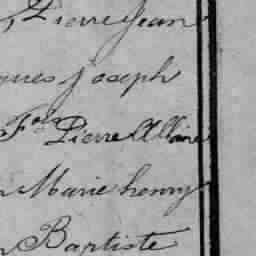 , Pierre Jean
ques joseph
Fois Pierre Allaire
Marie henry
Baptiste